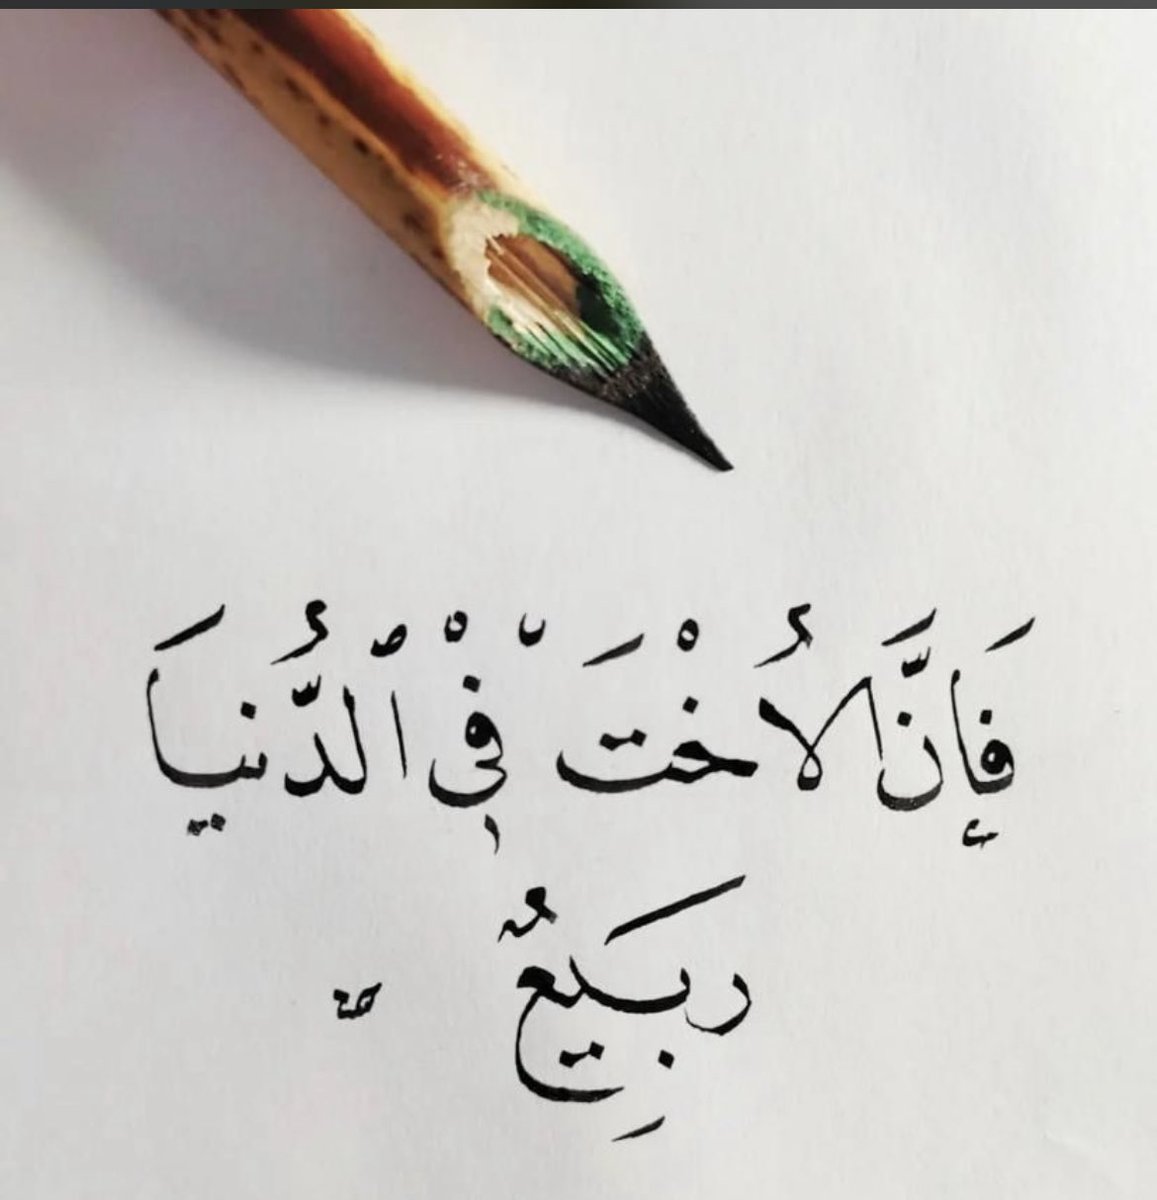 فَإِنَّ الأُخْتَ فِي ٱلدُّنيَا
رَبِيعٌ